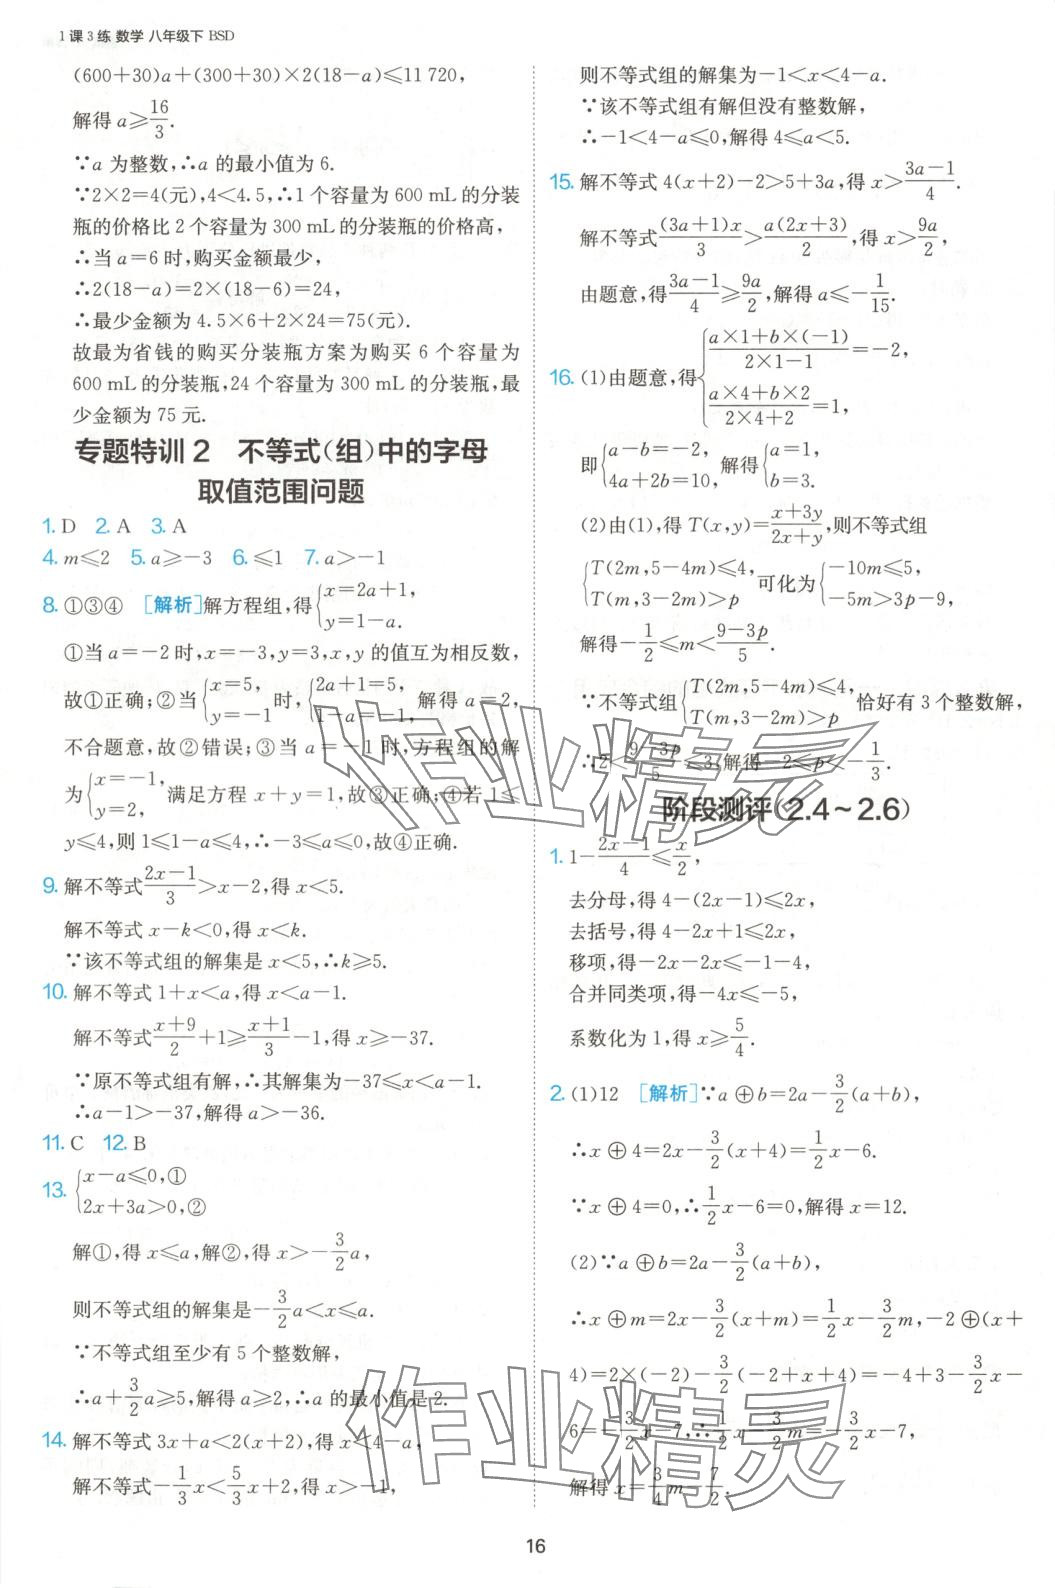 1课3练 数学 八年级下 BSD
(600+30)a+(300+30)×2(18-a)≤11 720,
解得 a≥16/3.
∵a 为整数,∴a 的最小值为 6.
∵2×2=4(元),4<4.5,∴1 个容量为 600 mL 的分装
瓶的价格比 2 个容量为 300 mL 的分装瓶的价格高,
∴当 a=6 时,购买金额最少,
∴2(18-a)=2×(18-6)=24,
∴最少金额为 4.5×6+2×24=75(元).
故最为省钱的购买分装瓶方案为购买 6 个容量为
600 mL 的分装瓶,24 个容量为 300 mL 的分装瓶,最
少金额为 75 元.
专题特训2 不等式(组)中的字母
取值范围问题
1. D 2. A 3. A
4. m≤2 5. a≥-3 6. ≤1 7. a>-1
8. ①③④ [解析]解方程组,得{x=2a+1, y=1-a.
①当 a=-2 时,x=-3,y=3,x,y 的值互为相反数,
故①正确;②当{x=5, y=-1 时,{2a+1=5, 1-a=-1, 解得 a=2,
不合题意,故②错误;③当 a=-1 时,方程组的解
为{x=-1, y=2, 满足方程 x+y=1,故③正确;④若 1≤
y≤4,则 1≤1-a≤4,∴-3≤a≤0,故④正确.
9. 解不等式(2x-1)/3>x-2,得 x<5.
解不等式 x-k<0,得 x<k.
∵该不等式组的解集是 x<5,∴k≥5.
10. 解不等式 1+x<a,得 x<a-1.
解不等式(x+9)/2+1≥(x+1)/3-1,得 x≥-37.
∵原不等式组有解,∴其解集为-37≤x<a-1.
∴a-1>-37,解得 a>-36.
11. C 12. B
13. {x-a≤0,① 2x+3a>0,②
解①,得 x≤a,解②,得 x>-3/2a,
则不等式组的解集是-3/2a<x≤a.
∵不等式组至少有 5 个整数解,
∴a+3/2a≥5,解得 a≥2,∴a 的最小值是 2.
14. 解不等式 3x+a<2(x+2),得 x<4-a,
解不等式-1/3x<5/3x+2,得 x>-1,
则不等式组的解集为-1<x<4-a.
∵该不等式组有解但没有整数解,
∴-1<4-a≤0,解得 4≤a<5.
15. 解不等式 4(x+2)-2>5+3a,得 x>(3a-1)/4.
解不等式(3a+1)x/3>a(2x+3)/2,得 x>9a/2,
由题意,得(3a-1)/4≥9a/2,解得 a≤-1/15.
16. (1)由题意,得{(a×1+b×(-1))/(2×1-1)=-2, (a×4+b×2)/(2×4+2)=1,
即{a-b=-2, 4a+2b=10, 解得{a=1, b=3.
(2)由(1),得 T(x,y)=(x+3y)/(2x+y),则不等式组
{T(2m,5-4m)≤4, T(m,3-2m)>p 可化为{-10m≤5, -5m>3p-9,
解得-1/2≤m<(9-3p)/5.
∵不等式组{T(2m,5-4m)≤4, T(m,3-2m)>p 恰好有 3 个整数解,
∴2<(9-3p)/5≤3,解得-2≤p<-1/3.
阶段测评(2.4~2.6)
1. 1-(2x-1)/4≤x/2,
去分母,得 4-(2x-1)≤2x,
去括号,得 4-2x+1≤2x,
移项,得-2x-2x≤-1-4,
合并同类项,得-4x≤-5,
系数化为 1,得 x≥5/4.
2. (1)12 [解析]∵a⊕b=2a-3/2(a+b),
∴x⊕4=2x-3/2(x+4)=1/2x-6.
∵x⊕4=0,∴1/2x-6=0,解得 x=12.
(2)∵a⊕b=2a-3/2(a+b),
∴x⊕m=2x-3/2(x+m)=1/2x-3/2m,-2⊕(x+
4)=2×(-2)-3/2(-2+x+4)=-4+3-3/2x-
6=-3/2x-7,∴1/2x-3/2m=-3/2x-7,
解得 x=3/4m-7/2.
16
作业精灵
作业精灵